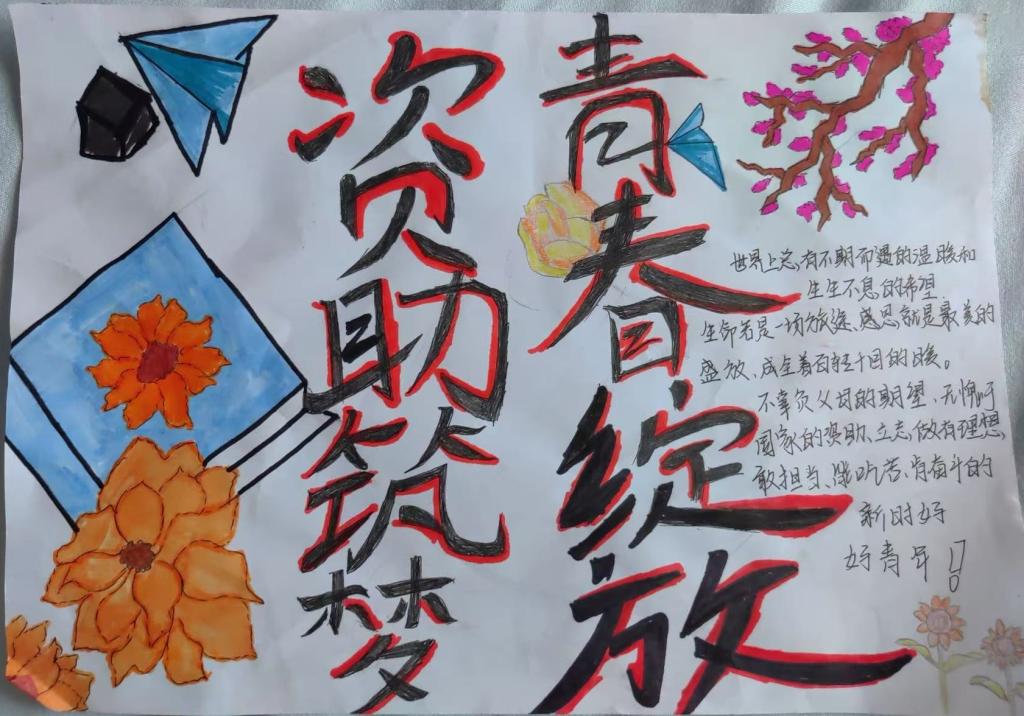 资助筑梦
青春绽放
世界上总有不期而遇的温暖和
生生不息的希望
生命若是一场旅途、感恩就是最美的
盛放、成全着百转千回的暖。
不辜负父母的期望、无愧
国家的资助、立志、做有理想、
敢担当、能吃苦、肯奋斗的
新时好
好青年!!